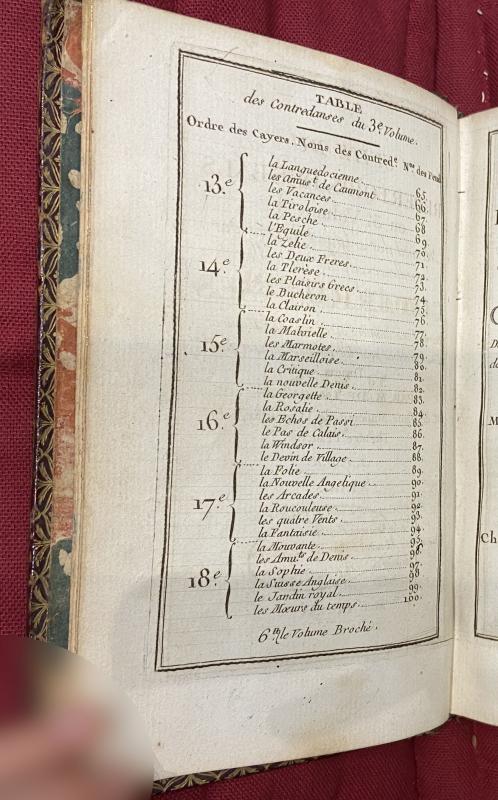 TABLE
des Contredanses du 3e Volume.
Ordre des Cayers. Noms des Contred.s Nos des Feuil
13.e
la Languedocienne. 65.
les Amust. de Caumont. 66.
les Vacances. 67.
la Tiroloise. 68
la Pesche. 69.
l'Equile. 70.
14.e
la Zelie. 71.
les Deux Freres. 72.
la Tlerèse. 73.
les Plaisirs Grecs. 74.
le Bucheron. 75.
la Clairon. 76.
15.e
la Coaslin. 77.
la Malvielle. 78.
les Marmotes. 79.
la Marseilloise. 80.
la Critique. 81.
la nouvelle Denis. 82.
16.e
la Georgette. 83.
la Rosalie. 84.
les Echos de Passi. 85.
le Pas de Calais. 86.
la Windsor. 87.
le Devin de Village. 88.
17.e
la Folie. 89.
la Nouvelle Angelique. 90.
les Arcades. 91.
la Roucouleuse. 92.
les quatre Vents. 93.
la Fantaisie. 94.
18.e
la Mouvante. 95.
les Amuts. de Denis. 96.
la Sophie. 97.
la Suisse Anglaise. 98.
le Jardin royal. 99.
les Mœurs du temps. 100.
6tt. le Volume Broché.